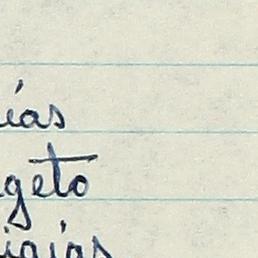 ias
geto
iajas